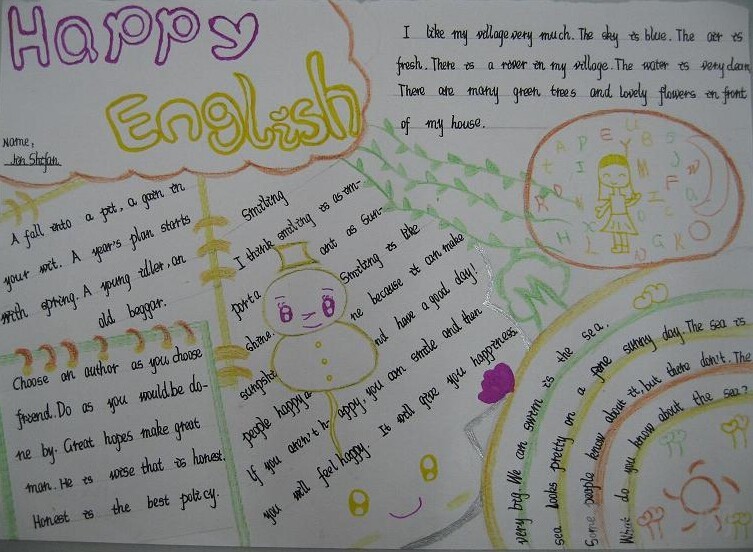 Happy
English
Name:
Jon Shefan.
I like my village very much. The sky is blue. The air is
fresh. There is a river in my village. The water is very clean.
There are many green trees and lovely flowers in front
of my house.
A fall into a pit, a gain in
your wit. A year's plan starts
with spring. A young idler, an
old beggar.
Choose an author as you choose
friend. Do as you would be do-
ne by. Great hopes make great
man. He is wise that is honest.
Honest is the best policy.
Smiling
I think smiling is as im-
porta ant as sun-
shine. Smiling is like
sunyshi ne because it can make
people happy a nd have a good day!
If you aren't h- appy, you can smile and then
you will feel happy. It will give you happiness.
M
very big. We can swim is the sea.
sea looks pretty on a fine sunny day. The sea is
Some people know about it, but there don't. The
What do you know about the sea?